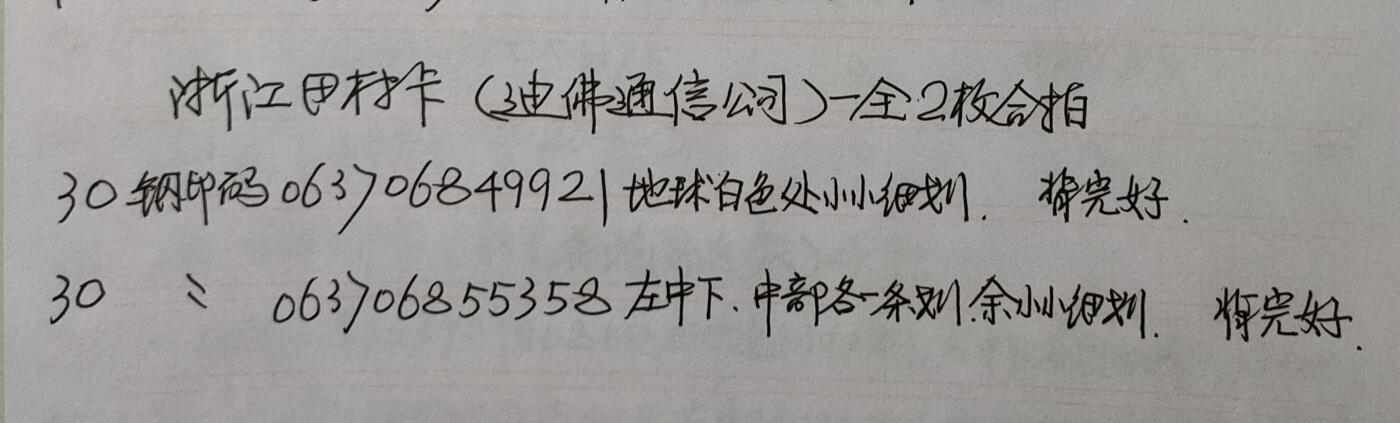 浙江田村卡（迪佛通信公司）一全2枚合拍
30 钢印码 063706849921 地球白色处小小细划. 背完好.
30 〃 063706855358 左中下.中部各一条划.余小小细划. 背完好.